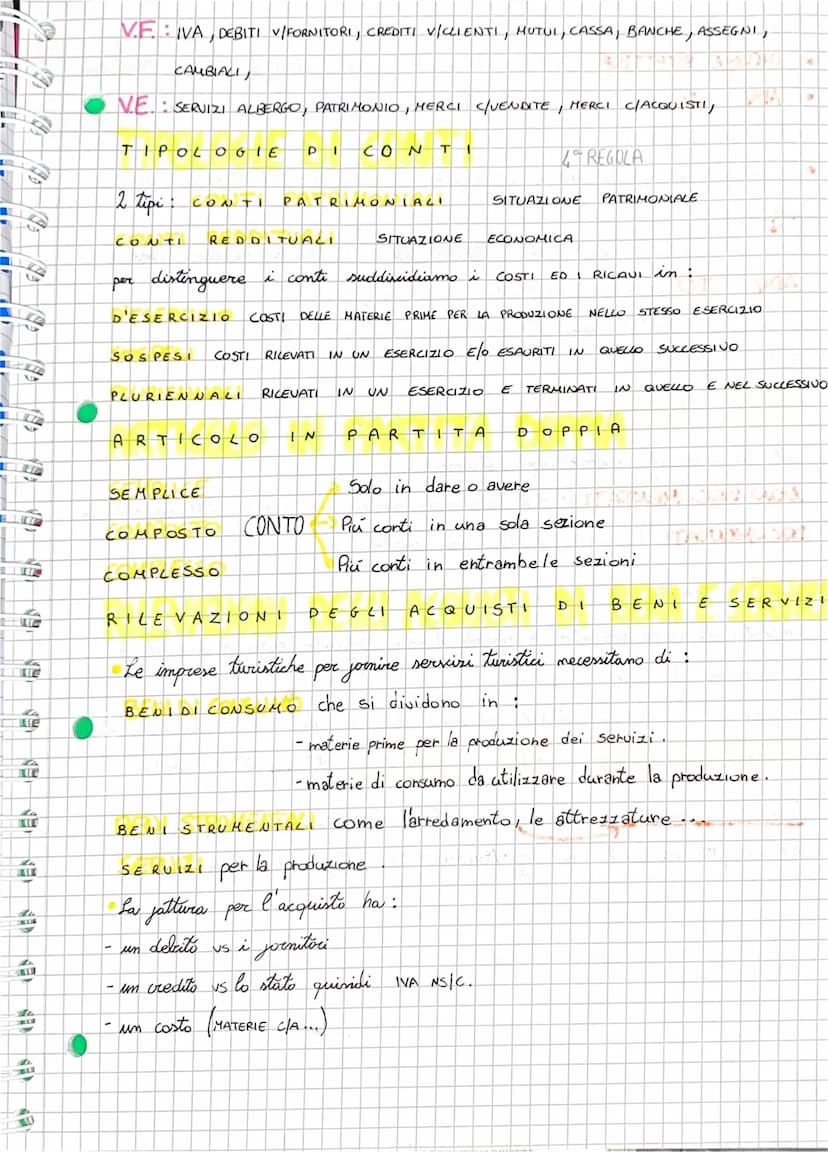 V.F. : IVA, DEBITI V/FORNITORI, CREDITI V/CLIENTI, MUTUI, CASSA, BANCHE, ASSEGNI,
CAMBIALI,
V.E. : SERVIZI ALBERGO, PATRIMONIO, MERCI C/VENDITE, MERCI C/ACQUISTI,
TIPOLOGIE DI CONTI
4ª REGOLA
2 tipi: CONTI PATRIMONIALI SITUAZIONE PATRIMONIALE
CONTI REDDITUALI SITUAZIONE ECONOMICA
per distinguere i conti suddividiamo i COSTI ED I RICAVI in :
D'ESERCIZIO COSTI DELLE MATERIE PRIME PER LA PRODUZIONE NELLO STESSO ESERCIZIO
SOSPESI COSTI RILEVATI IN UN ESERCIZIO E/O ESAURITI IN QUELLO SUCCESSIVO
PLURIENNALI RILEVATI IN UN ESERCIZIO E TERMINATI IN QUELLO E NEL SUCCESSIVO
ARTICOLO IN PARTITA DOPPIA
SEMPLICE Solo in dare o avere
COMPOSTO CONTO Più conti in una sola sezione
COMPLESSO Più conti in entrambe le sezioni
RILEVAZIONI DEGLI ACQUISTI DI BENI E SERVIZI
• Le imprese turistiche per fornire servizi turistici necessitano di :
BENI DI CONSUMO che si dividono in :
- materie prime per la produzione dei servizi.
- materie di consumo da utilizzare durante la produzione.
BENI STRUMENTALI come l'arredamento, le attrezzature ...
SERVIZI per la produzione.
• La fattura per l'acquisto ha :
- un debito vs i fornitori
- un credito vs lo stato quindi IVA NS/C.
- un costo (MATERIE C/A...)